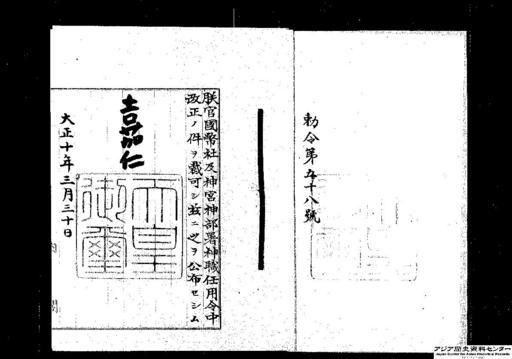 勅令第五十八號
朕官國幣社及神宮神部署神職任用令中
改正ノ件ヲ裁可シ茲ニ之ヲ公布セシム
嘉仁
天皇御璽
大正十年三月三十日
内閣
アジア歴史資料センター
Japan Center for Asian Historical Records